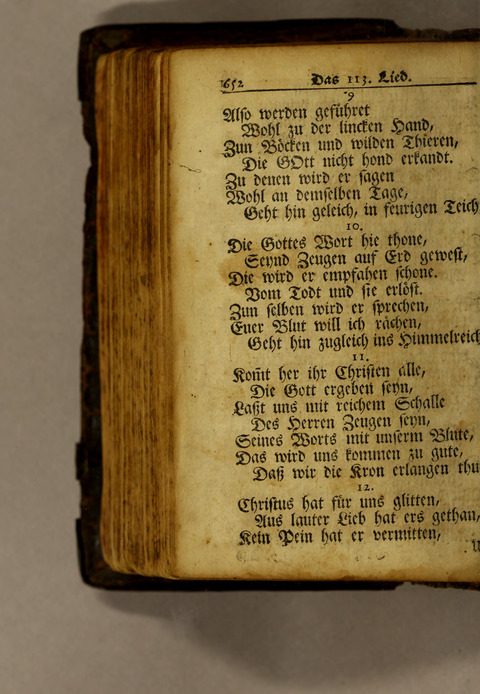 652 Das 113. Lied.
9
Also werden geführet
Wohl zu der lincken Hand,
Zun Böcken und wilden Thieren,
Die GOtt nicht hond erkandt.
Zu denen wird er sagen
Wohl an demselben Tage,
Geht hin geleich, in feurigen Teich
10.
Die Gottes Wort hie thone,
Seynd Zeugen auf Erd gewest,
Die wird er empfahen schone.
Vom Todt und sie erlöst.
Zun selben wird er sprechen,
Euer Blut will ich rächen,
Geht hin zugleich ins Himmelreich
11.
Kom̄t her ihr Christen alle,
Die Gott ergeben seyn,
Laßt uns mit reichem Schalle
Des Herren Zeugen seyn,
Seines Worts mit unserm Blute,
Das wird uns kommen zu gute,
Daß wir die Kron erlangen thu
12.
Christus hat für uns glitten,
Aus lauter Lieb hat ers gethan,
Kein Pein hat er vermitten,